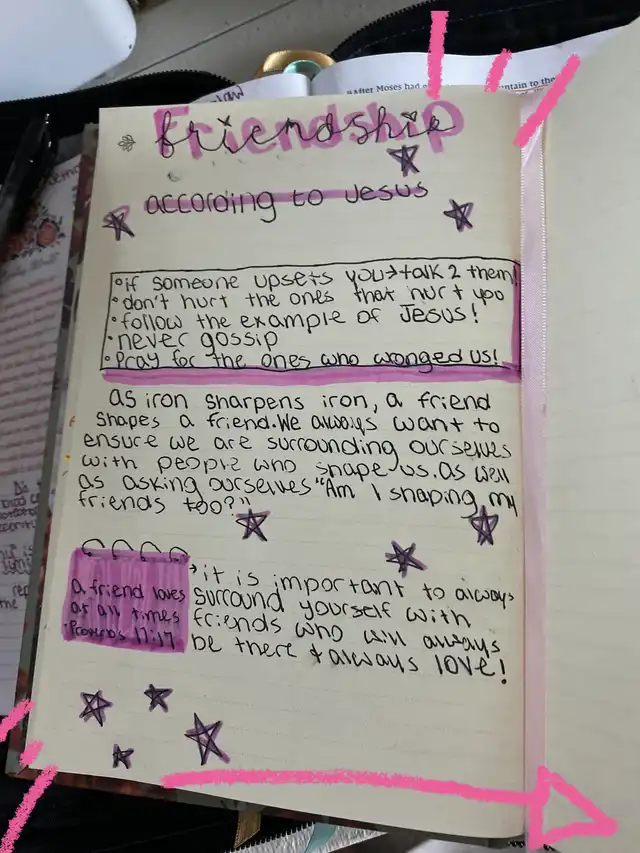 "After Moses had
ntain to the
Friendship
friendship
according to Jesus
• if someone upsets you → talk 2 them!
• don't hurt the ones that hurt you
• follow the example of Jesus!
• never gossip
• Pray for the ones who wonged us!
as iron sharpens iron, a friend
shapes a friend. We always want to
ensure we are surrounding ourselves
with people who shape us. As well
as asking ourselves "Am I shaping my
friends too?"
a friend loves
at all times
- Proverbs 17:17
→ it is important to always
surround yourself with
friends who will always
be there + always love!